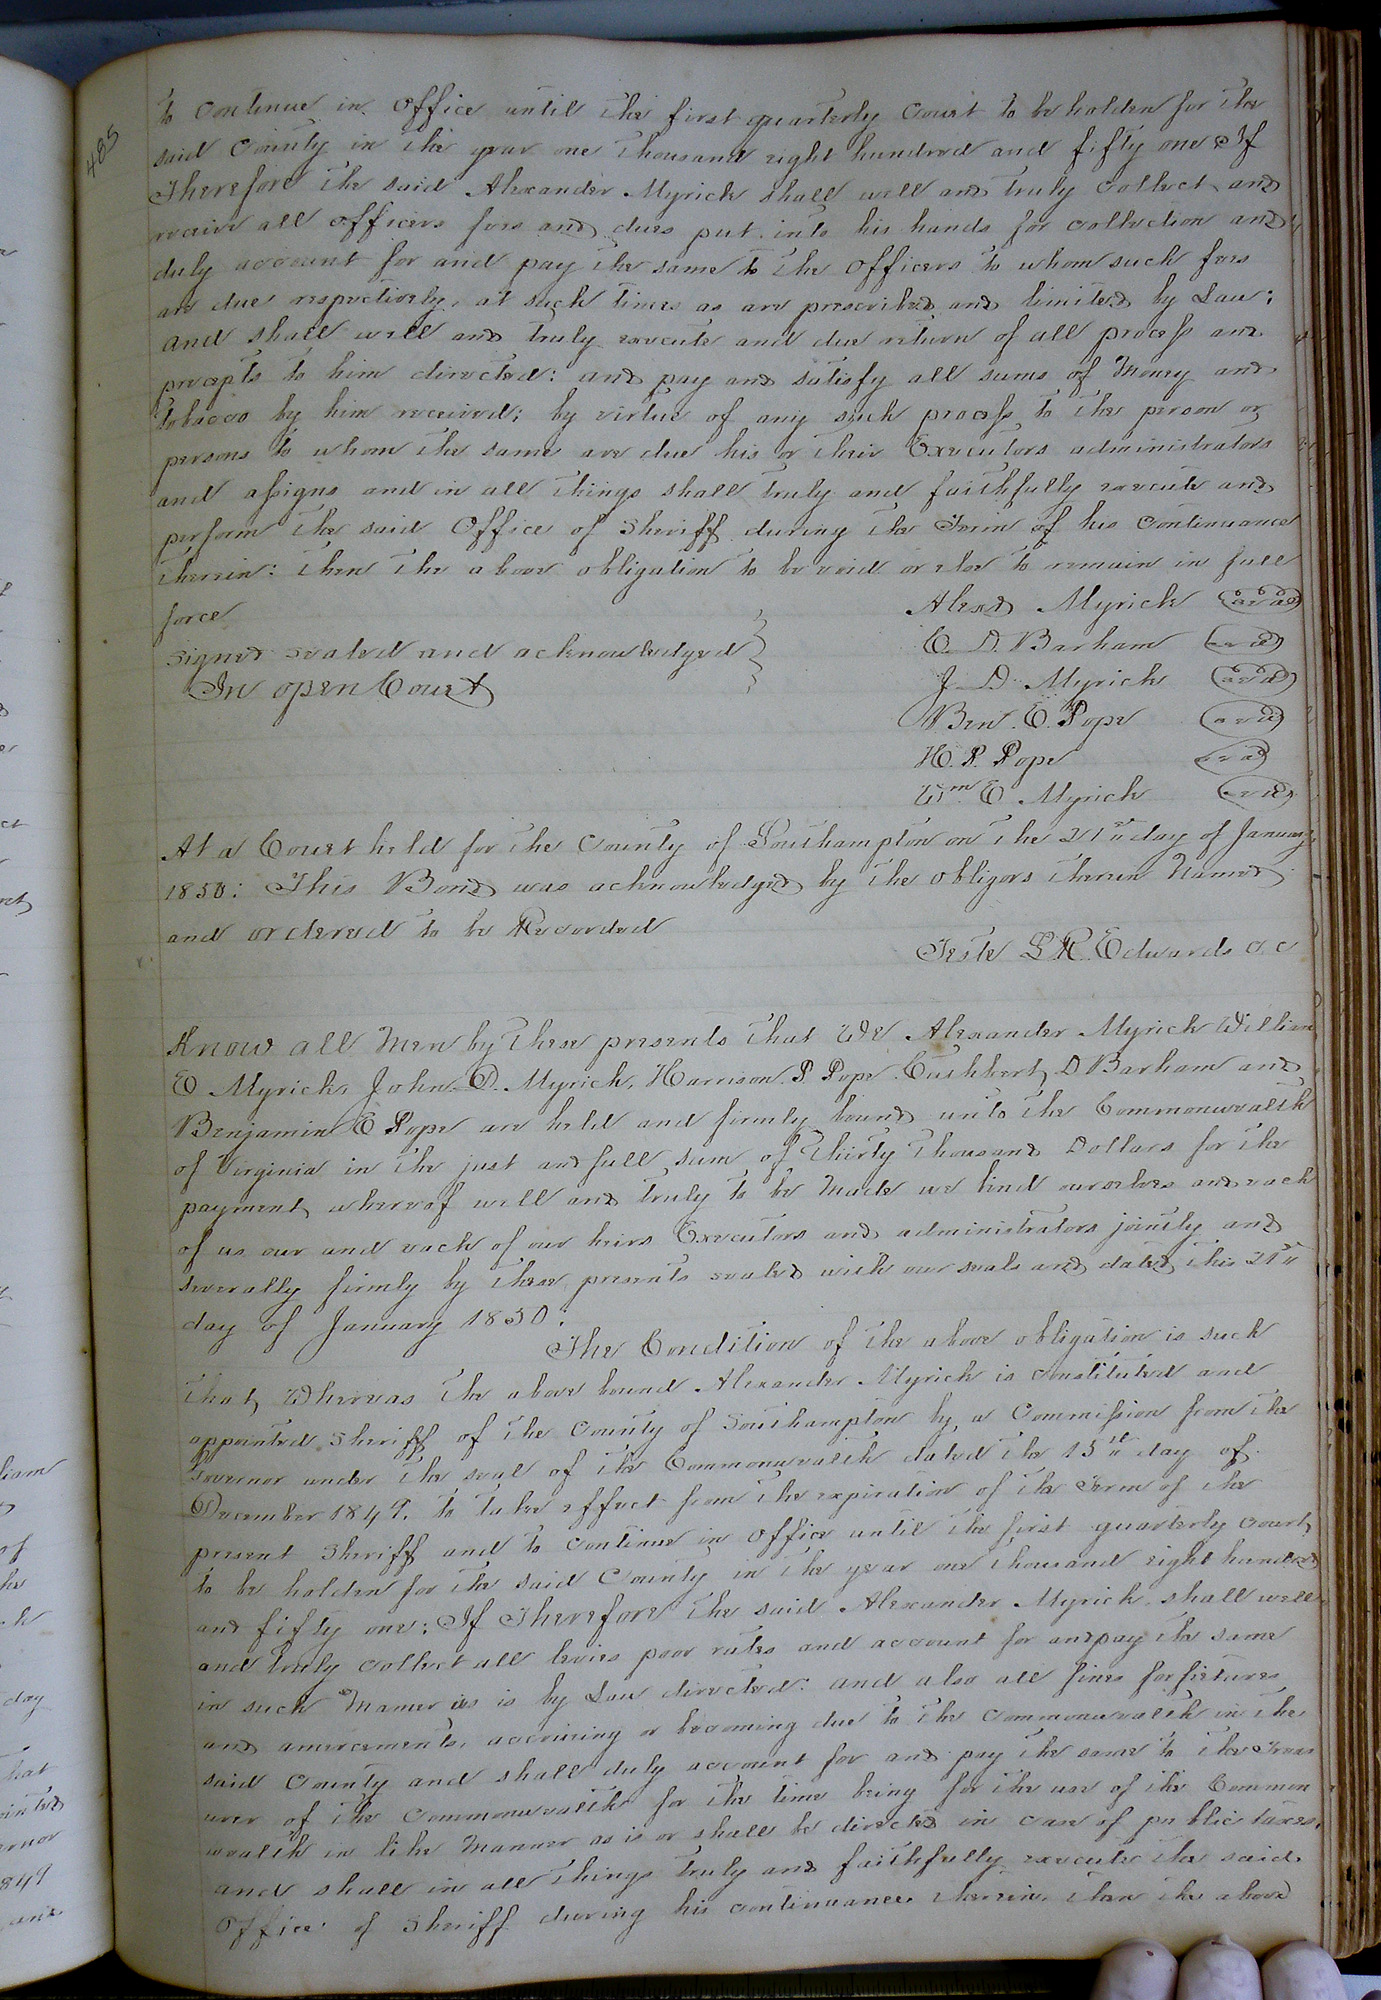 485
to continue in Office until the first quarterly Court to be holden for the
said County in the year one thousand eight hundred and fifty one If
Therefore the said Alexander Myrick shall well and truly collect and
receive all officers fees and dues put into his hands for collection and
duly account for and pay the same to the officers to whom such fees
are due respectively, at such times as are prescribed and limited by Law;
and shall well and truly execute and due return of all process and
precepts to him directed: and pay and satisfy all sums of Money and
Tobacco by him received; by virtue of any such process to the person or
persons to whom the same are due his or their Executors administrators
and assigns and in all things shall truly and faithfully execute and
perform the said Office of Sheriff during the Term of his Continuance
therein: then the above obligation to be void or else to remain in full
force
Signed sealed and acknowledged
In open Court
Alexd Myrick (seal)
C. D. Barham (seal)
J. D. Myrick (seal)
Ben. E. Pope (seal)
H. P. Pope (seal)
Wm E Myrick (seal)
At a Court held for the County of Southampton on the 21st day of January
1850: This Bond was acknowledged by the obligors therein Named
and ordered to be Recorded
Teste L R. Edwards c. c
Know all Men by these presents that We Alexander Myrick William
E Myrick, John. D. Myrick, Harrison. P. Pope. Cuthbert, D Barham and
Benjamin E Pope are held and firmly bound unto the Commonwealth
of Virginia in the just and full sum of Thirty Thousand Dollars for the
payment whereof well and truly to be Made we bind ourselves and each
of us our and each of our heirs Executors and administrators jointly and
severally firmly by these presents sealed with our seals and dated this 21st
day of January 1850:
The Condition of the above obligation is such
that, Whereas the above bound Alexander Myrick is constituted and
appointed Sheriff of the County of Southampton by a Commission from the
Governor under the seal of the Commonwealth dated the 15th day of
December 1849. to take effect from the expiration of the Term of the
present Sheriff and to continue in office until the first quarterly court
to be holden for the said County in the year one thousand eight hundred
and fifty one; If Therefore the said Alexander Myrick shall well
and truly collect all levies poor rates and account for and pay the same
in such Manner as is by Law directed: and also all fines forfietures
and amercements, accruing or becoming due to the Commonwealth in the
said County and shall duly account for and pay the same to the Treas
urer of the Commonwealth for the time being for the use of the Common
wealth in like Manner as is or shall be directed in case of public taxes.
and shall in all things truly and faithfully execute the said
Office of Sheriff during his continuance therein. then the above